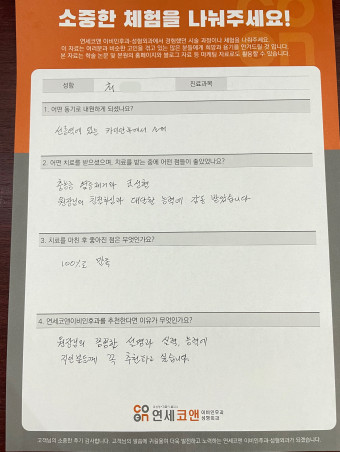 소중한 체험을 나눠주세요!
연세코앤 이비인후과·성형외과에서 경험했던 시술 과정이나 체험을 나눠주세요.
이 자료는 여러분과 비슷한 고민을 겪고 있는 많은 분들에게 희망과 용기를 안겨드릴 것 입니다.
본 자료는 학술 논문 및 본원의 홈페이지와 블로그 자료 등 마케팅 자료로도 활용할 수 있습니다.
성함
진료과목
1. 어떤 동기로 내원하게 되셨나요?
있는 소개
2. 어떤 치료를 받으셨으며, 치료를 받는 중에 어떤 점들이 좋았었나요?
원장님의 친절하심과 대단한 능력에 감동 받았습니다
3. 치료를 마친 후 좋아진 점은 무엇인가요?
100%로 만족
4. 연세코앤이비인후과를 추천한다면 이유가 무엇인가요?
원장님의 꼼꼼한 설명과 실력, 능력에
지인분들께 꼭 추천하고 싶습니다.
연세코앤 이비인후과 성형외과
고객님의 소중한 후기 감사합니다. 고객님의 말씀에 귀 기울여 더욱 발전하고 노력하는 연세코앤 이비인후과·성형외과가 되겠습니다.